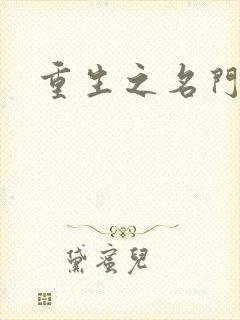 重生之名門
黛蜜兒